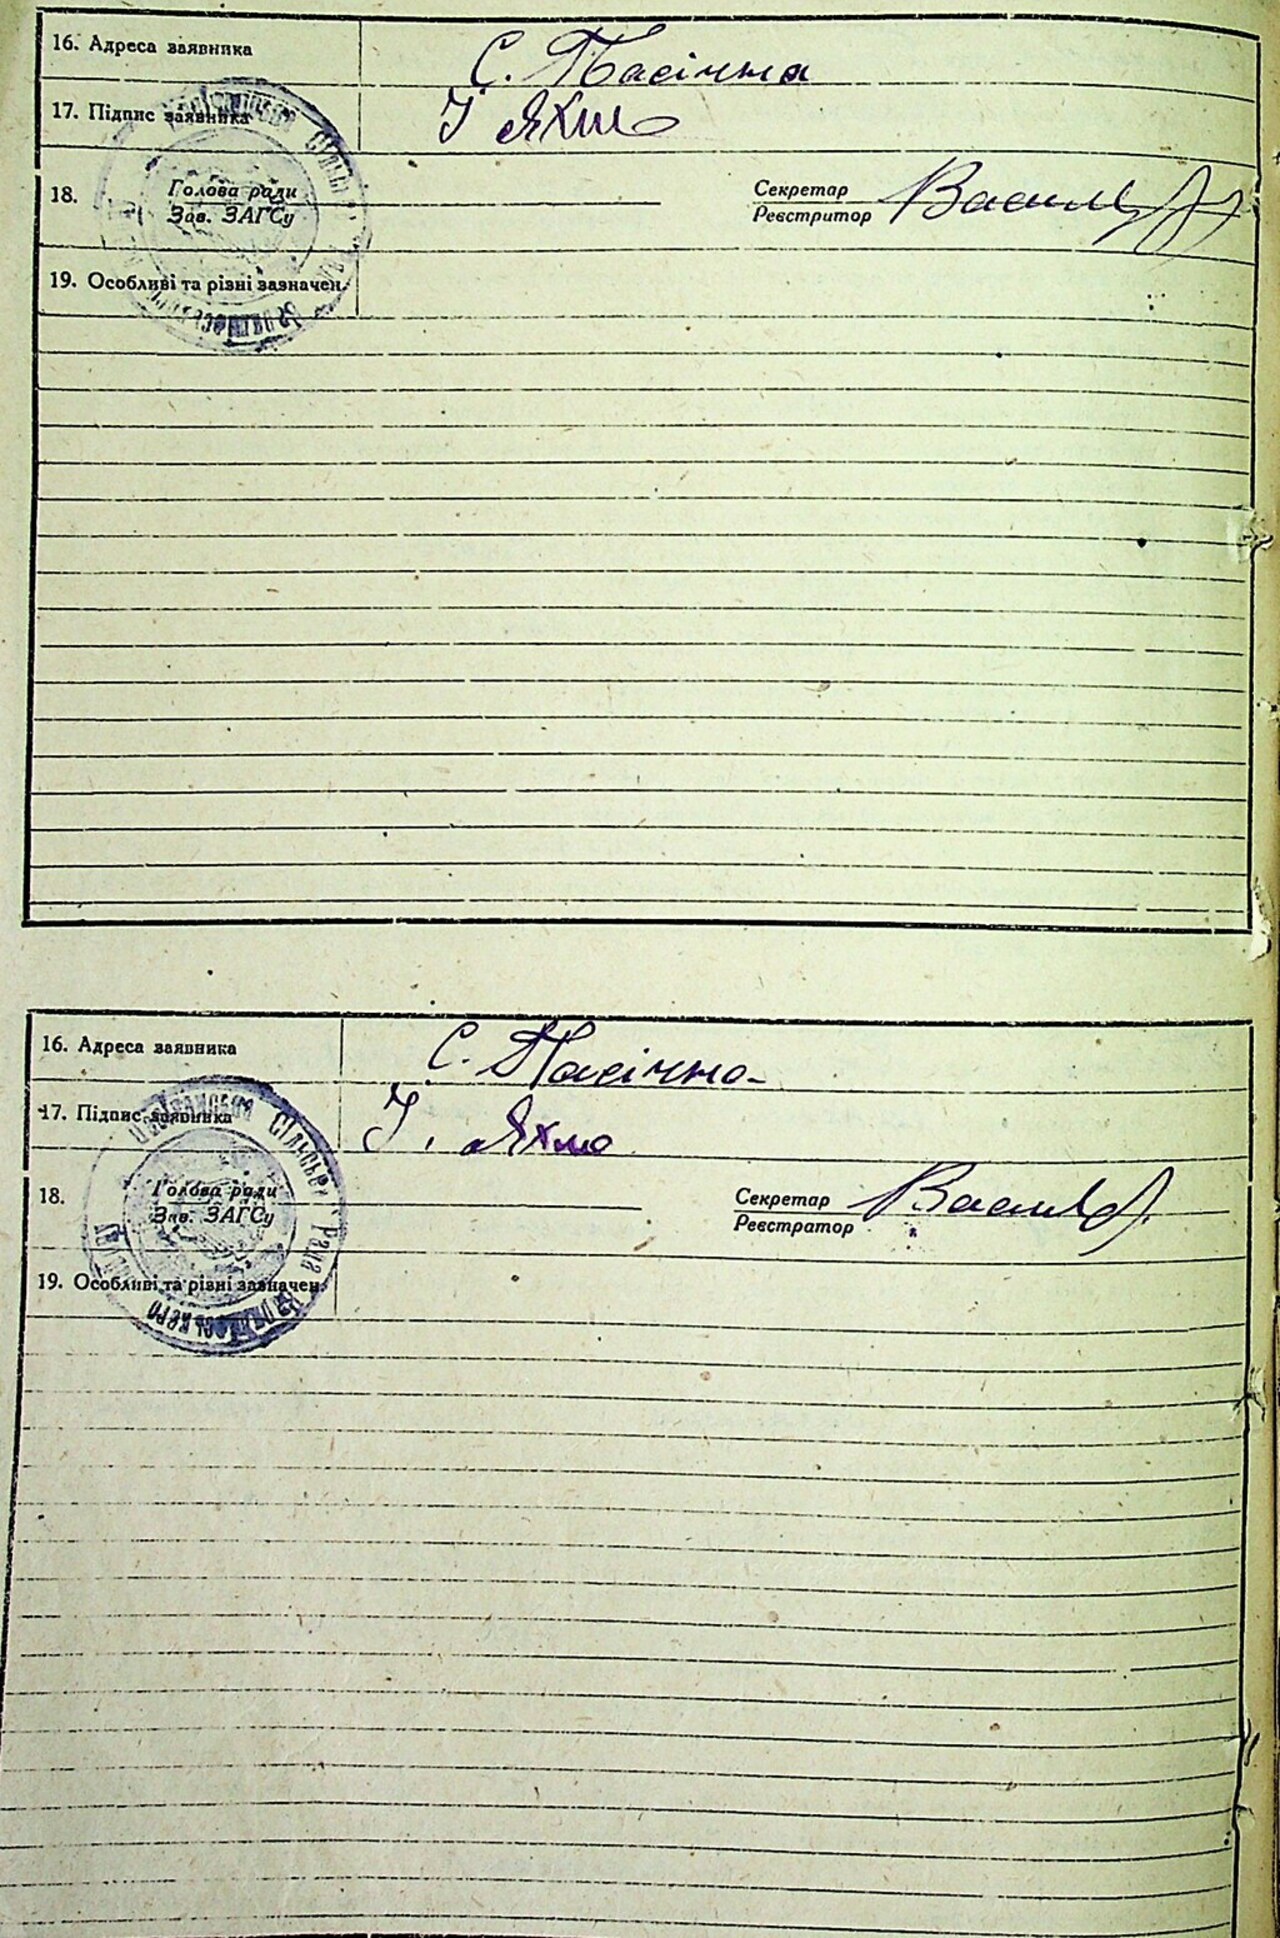 16. Адреса заявника С. Пасічна
17. Підпис заявника І Яхно
18. Голова ради
Зав. ЗАГСу
Секретар
Реєстритор
19. Особливі та різні зазначен.
16. Адреса заявника С. Пасічна
17. Підпис заявника І. Яхно
18. Голова ради
Зав. ЗАГСу
Секретар
Реєстратор
19. Особливі та різні зазначен.
Сільська Рада